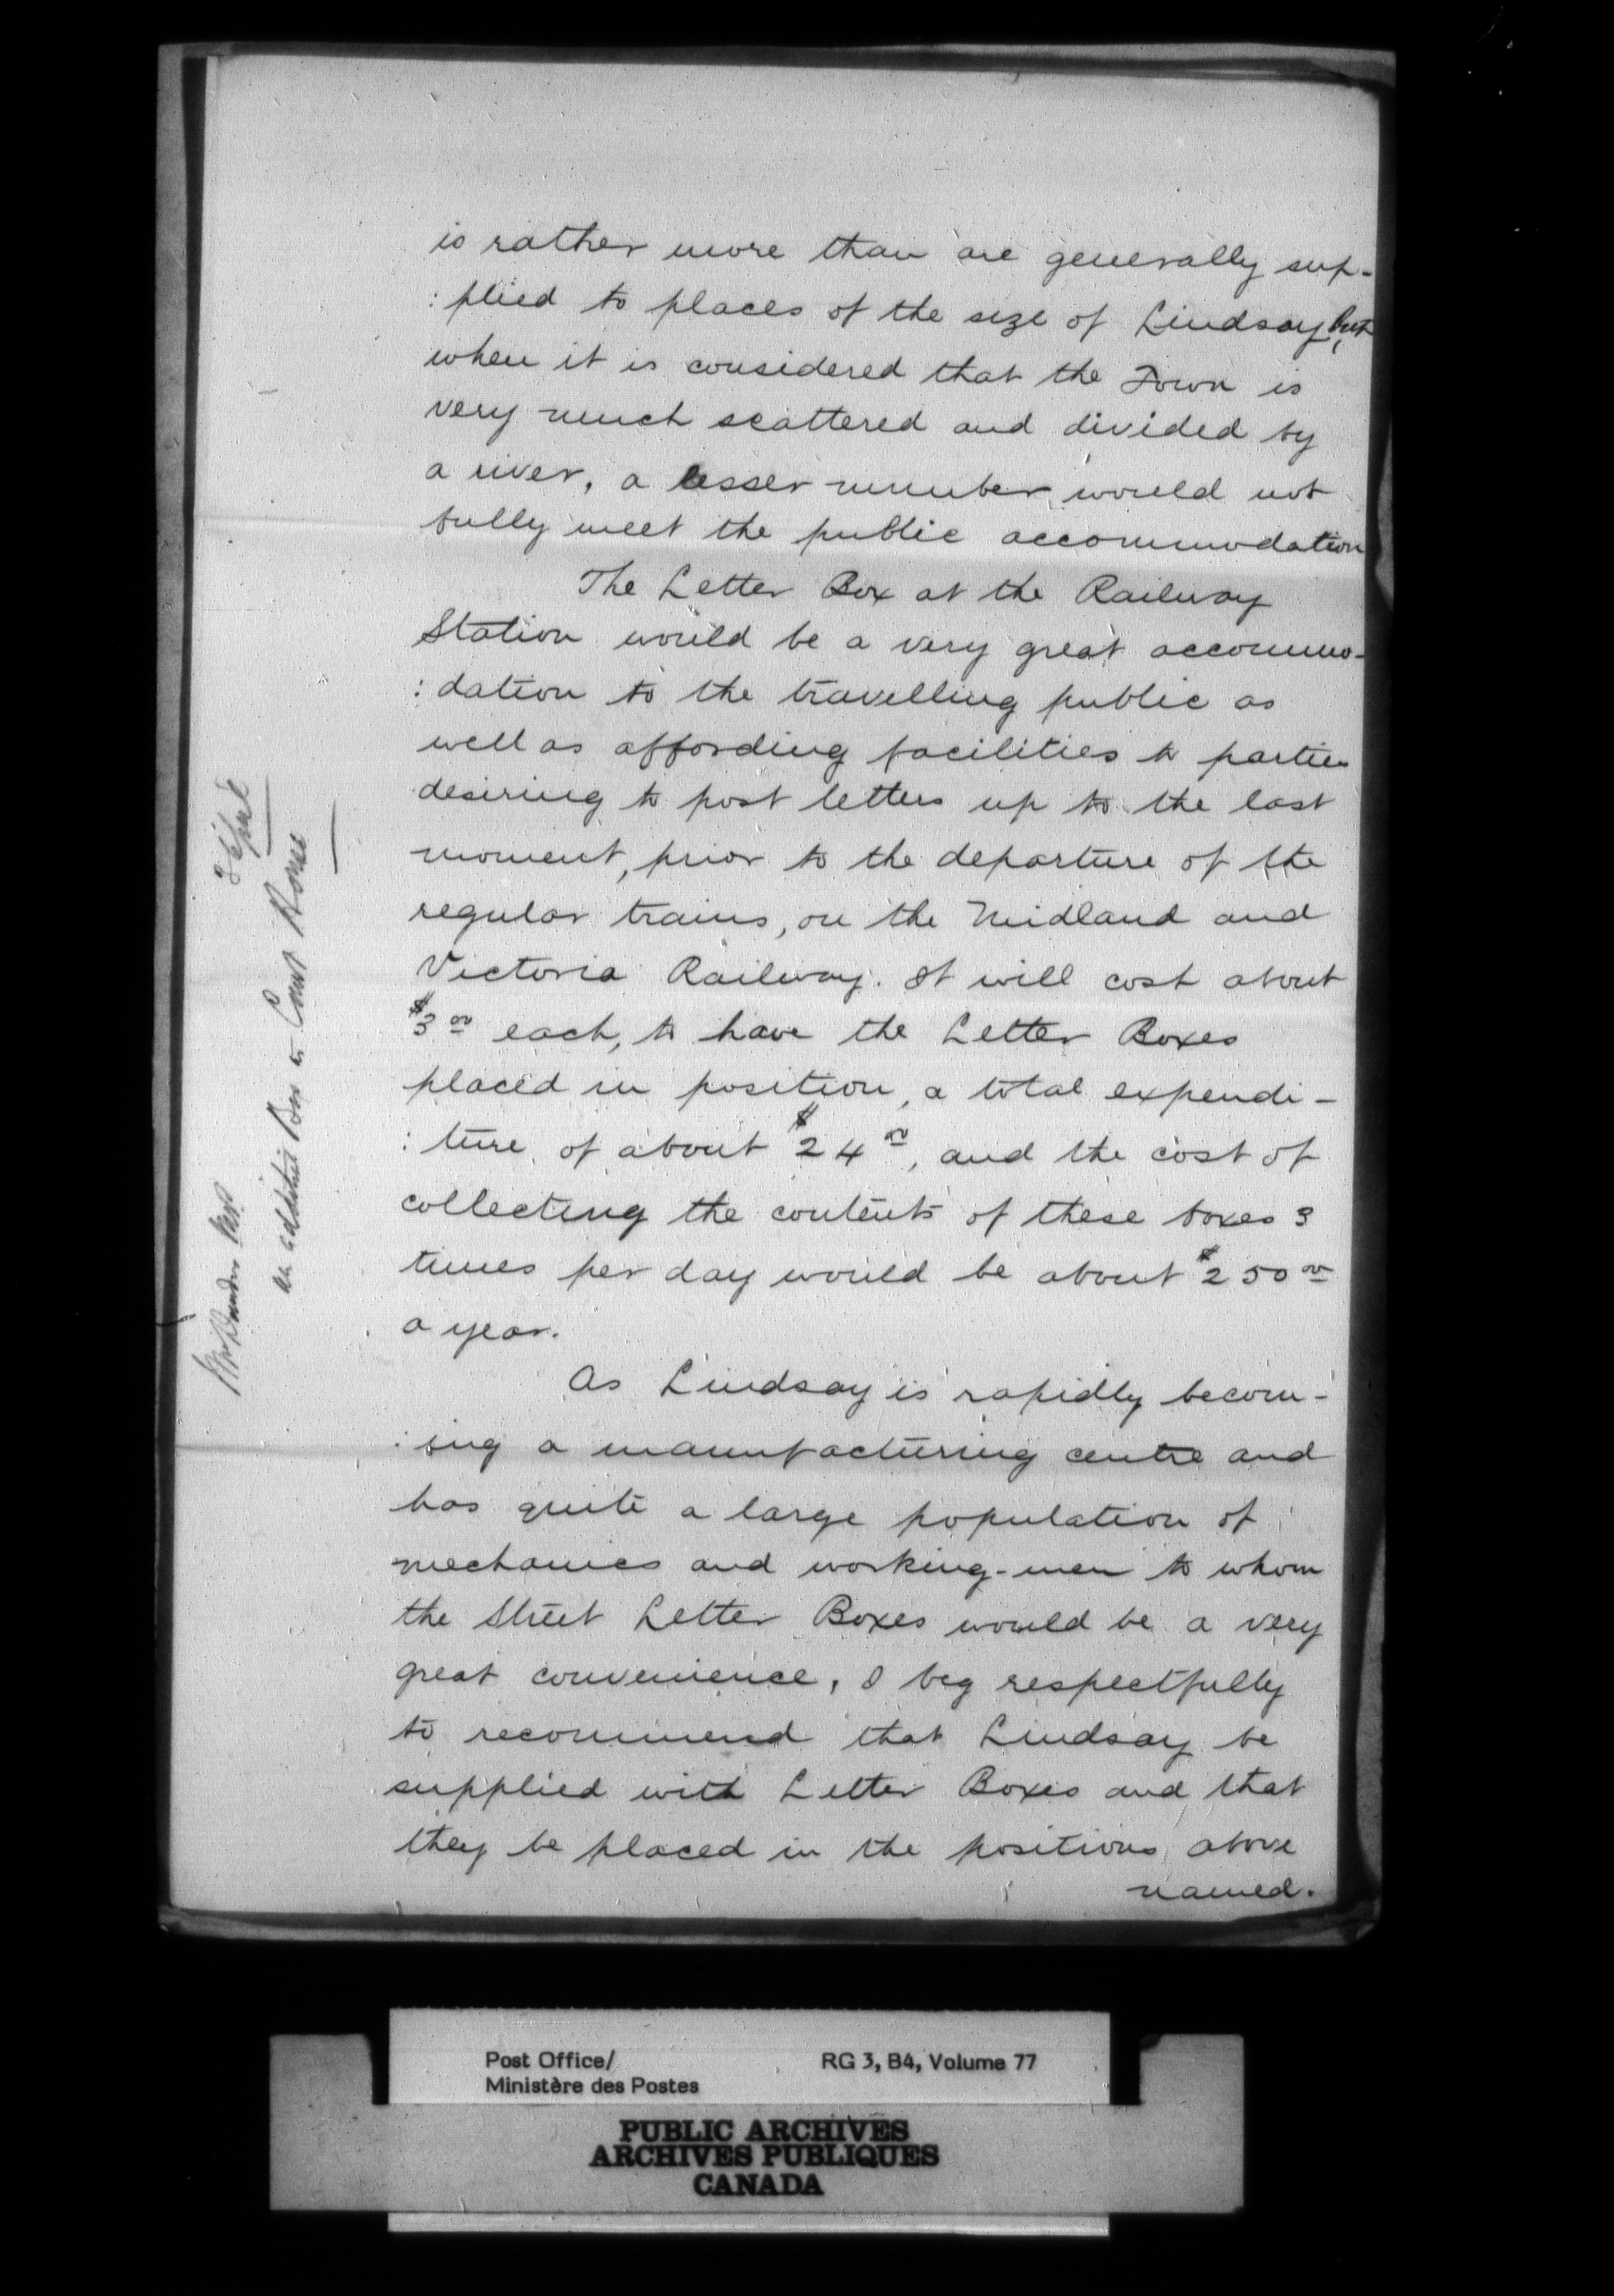 is rather more than are generally sup-
: plied to places of the size of Lindsay, but
when it is considered that the Town is
very much scattered and divided by
a river, a lesser number would not
fully meet the public accommodation
The Letter Box at the Railway
Station would be a very great accommo-
: dation to the travelling public as
well as affording facilities to parties
desiring to post letters up to the last
moment, prior to the departure of the
regular trains, on the Midland and
Victoria Railway. It will cost about
$3 00 each, to have the Letter Boxes
placed in position, a total expendi-
: ture of about $24 00, and the cost of
collecting the contents of these boxes 3
times per day would be about $250 00
a year.
As Lindsay is rapidly becom-
: ing a manufacturing centre and
has quite a large population of
mechanics and working-men to whom
the Street Letter Boxes would be a very
great convenience, I beg respectfully
to recommend that Lindsay be
supplied with Letter Boxes and that
they be placed in the positions above
named.
an additional Box to Court House
Post Office/
Ministère des Postes
RG 3, B4, Volume 77
PUBLIC ARCHIVES
ARCHIVES PUBLIQUES
CANADA